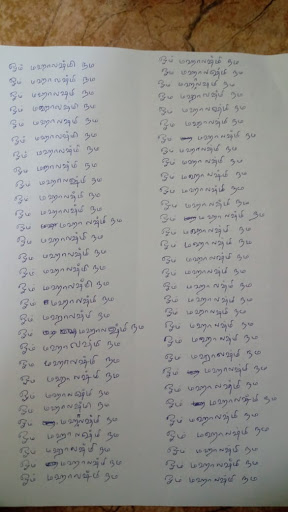 ஓம் மஹாலஷ்மி நம
ஓம் மஹாலஷ்மி நம
ஓம் மஹாலஷ்மி நம
ஓம் மஹாலஷ்மி நம
ஓம் மஹாலஷ்மி நம
ஓம் மஹாலஷ்மி நம
ஓம் மஹாலஷ்மி நம
ஓம் மஹாலஷ்மி நம
ஓம் மஹாலஷ்மி நம
ஓம் மஹாலஷ்மி நம
ஓம் மஹாலஷ்மி நம
ஓம் மஹாலஷ்மி நம
ஓம் மஹாலஷ்மி நம
ஓம் மஹாலஷ்மி நம
ஓம் மஹாலஷ்மி நம
ஓம் மஹாலஷ்மி நம
ஓம் மஹாலஷ்மி நம
ஓம் மஹாலஷ்மி நம
ஓம் மஹாலஷ்மி நம
ஓம் மஹாலஷ்மி நம
ஓம் மஹாலஷ்மி நம
ஓம் மஹாலஷ்மி நம
ஓம் மஹாலஷ்மி நம
ஓம் மஹாலஷ்மி நம
ஓம் மஹாலஷ்மி நம
ஓம் மஹாலஷ்மி நம
ஓம் மஹாலஷ்மி நம
ஓம் மஹாலஷ்மி நம
ஓம் மஹாலஷ்மி நம
ஓம் மஹாலஷ்மி நம
ஓம் மஹாலஷ்மி நம
ஓம் மஹாலஷ்மி நம
ஓம் மஹாலஷ்மி நம
ஓம் மஹாலஷ்மி நம
ஓம் மஹாலஷ்மி நம
ஓம் மஹாலஷ்மி நம
ஓம் மஹாலஷ்மி நம
ஓம் மஹாலஷ்மி நம
ஓம் மஹாலஷ்மி நம
ஓம் மஹாலஷ்மி நம
ஓம் மஹாலஷ்மி நம
ஓம் மஹாலஷ்மி நம
ஓம் மஹாலஷ்மி நம
ஓம் மஹாலஷ்மி நம
ஓம் மஹாலஷ்மி நம
ஓம் மஹாலஷ்மி நம
ஓம் மஹாலஷ்மி நம
ஓம் மஹாலஷ்மி நம
ஓம் மஹாலஷ்மி நம
ஓம் மஹாலஷ்மி நம
ஓம் மஹாலஷ்மி நம
ஓம் மஹாலஷ்மி நம
ஓம் மஹாலஷ்மி நம
ஓம் மஹாலஷ்மி நம
ஓம் மஹாலஷ்மி நம
ஓம் மஹாலஷ்மி நம
ஓம் மஹாலஷ்மி நம
ஓம் மஹாலஷ்மி நம
ஓம் மஹாலஷ்மி நம
ஓம் மஹாலஷ்மி நம